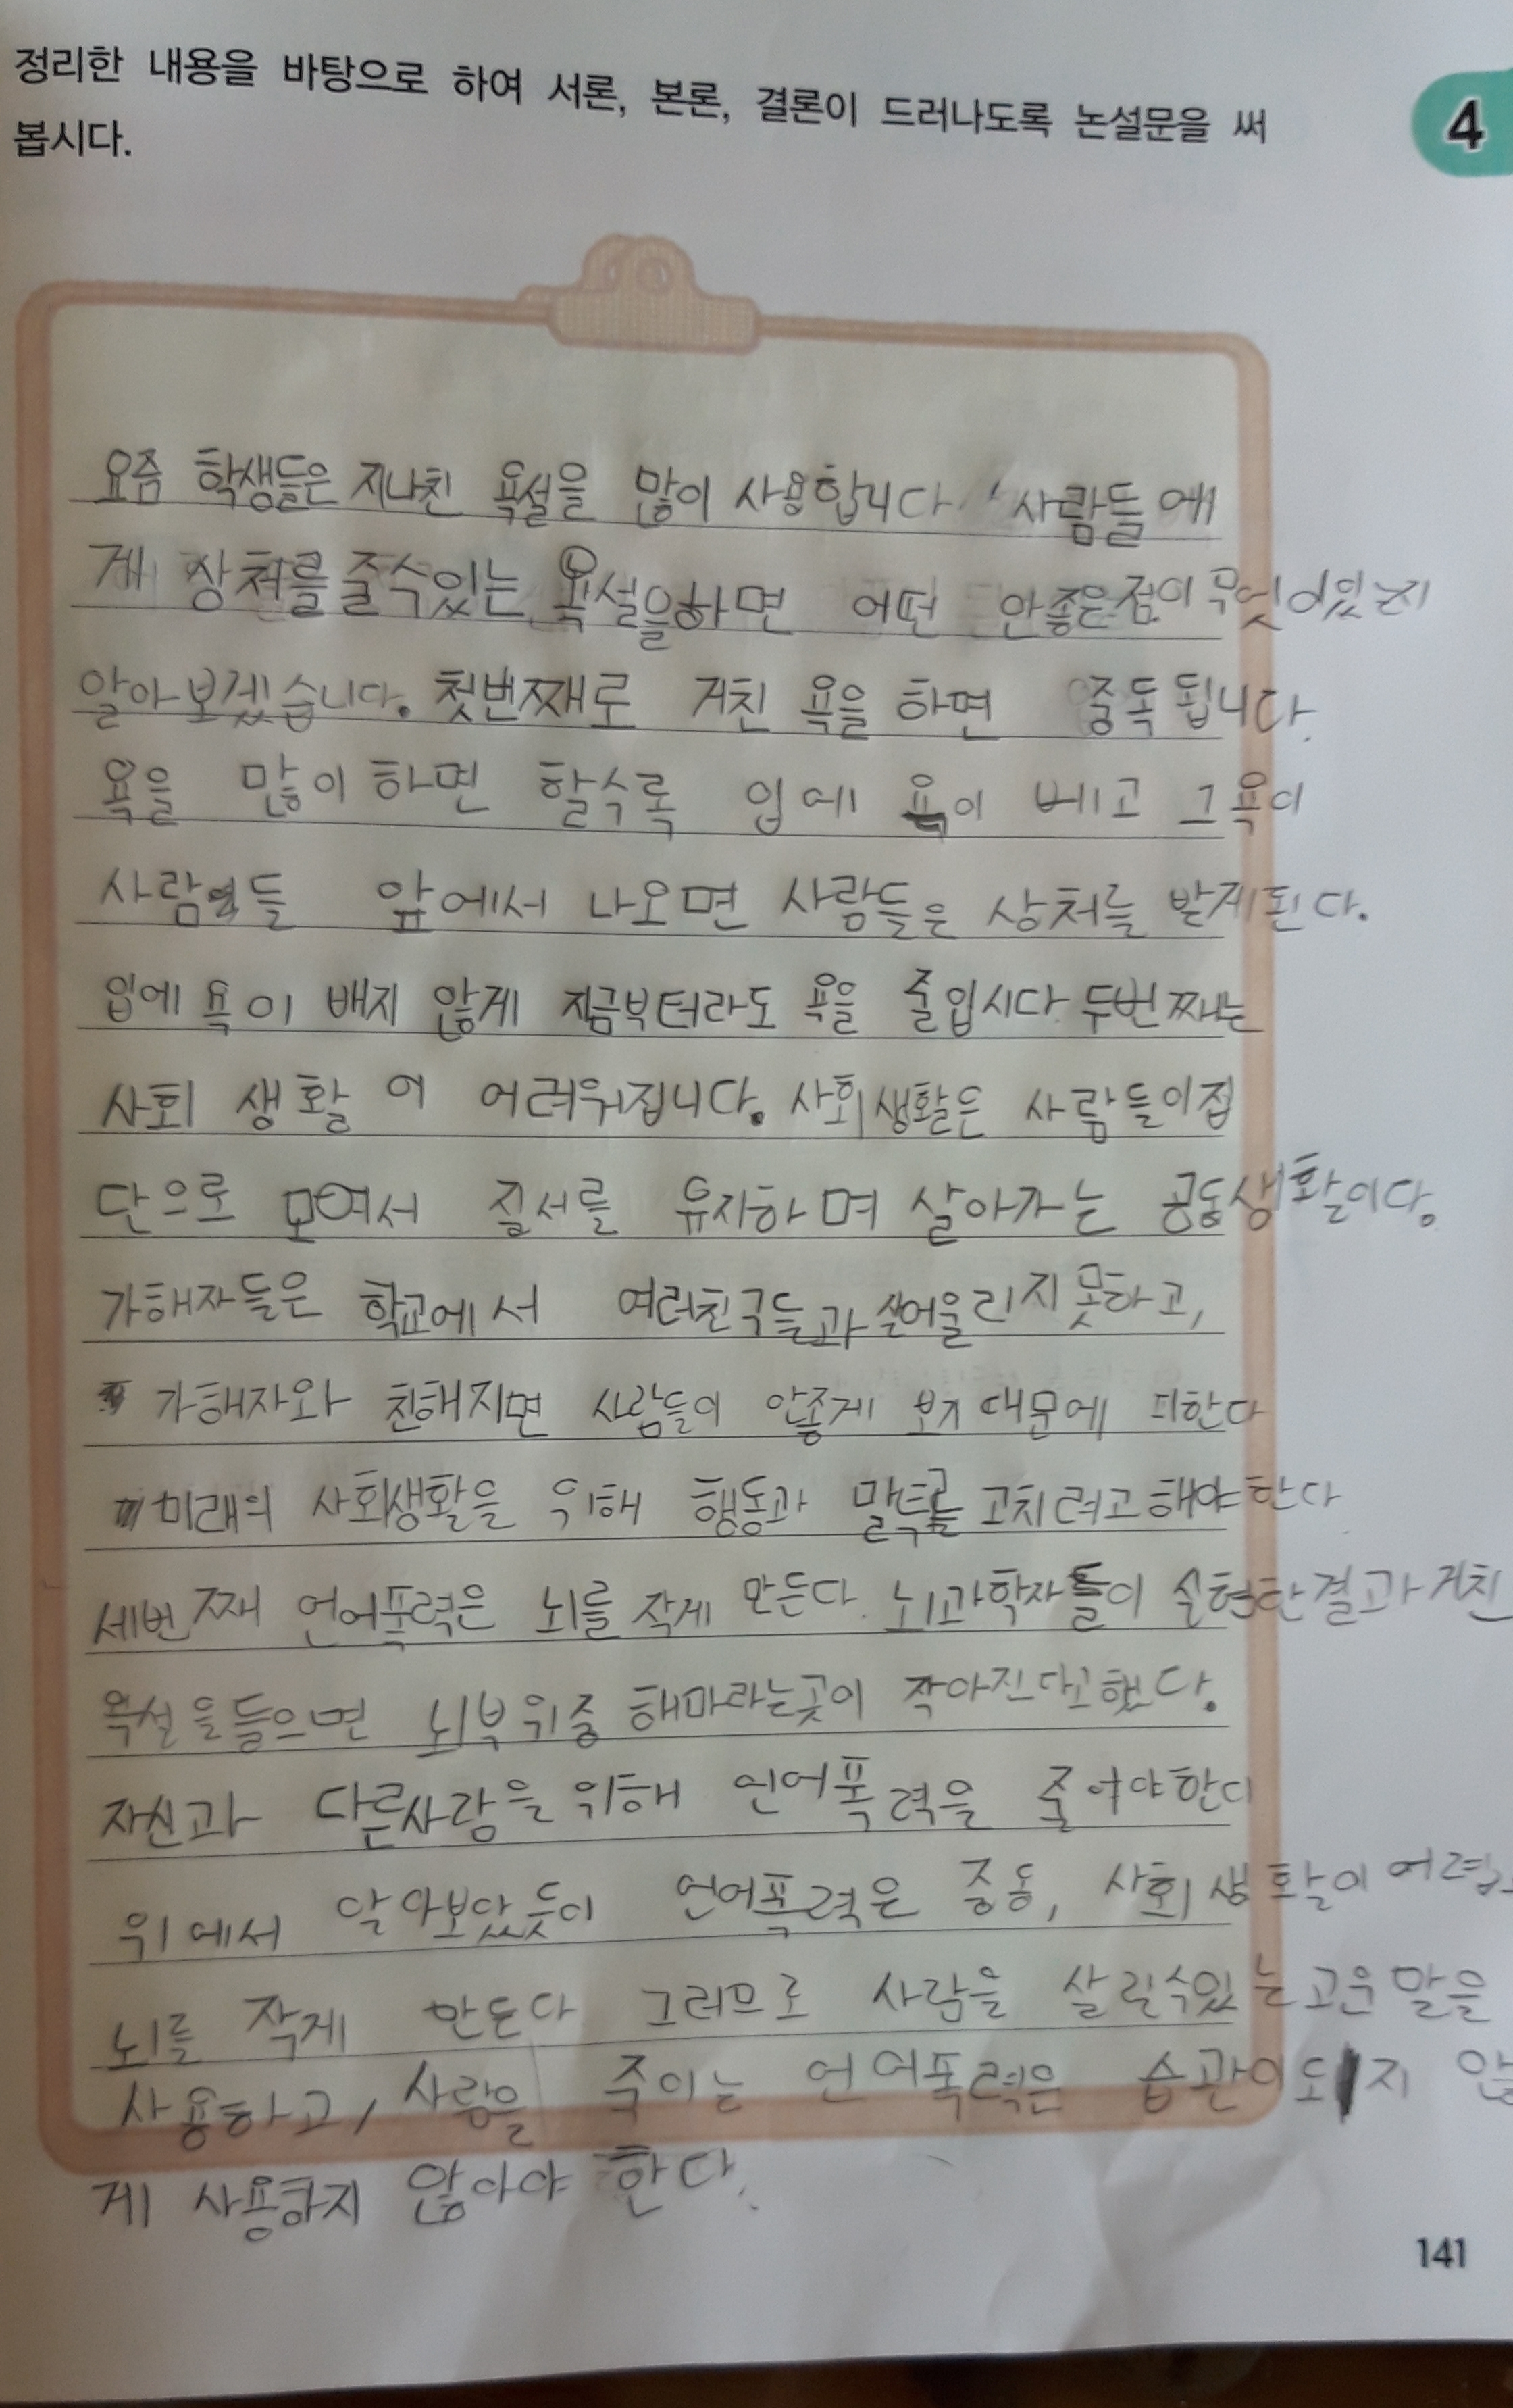 정리한 내용을 바탕으로 하여 서론, 본론, 결론이 드러나도록 논설문을 써
봅시다.
4
요즘 학생들은 지나친 욕설을 많이 사용합니다. 사람들에
게 상처를 줄수있는 욕설을하면 어떤 안좋은점이 무엇이있는지
알아보겠습니다. 첫번째로 거친 욕을 하면 중독됩니다.
욕을 많이하면 할수록 입에 욕이 베고 그 욕이
사람들 앞에서 나오면 사람들은 상처를 받게된다.
입에 욕이 배지 않게 지금부터라도 욕을 줄입시다 두번째는
사회 생활이 어려워집니다. 사회생활은 사람들이집
단으로 모여서 질서를 유지하며 살아가는 공동생활이다.
가해자들은 학교에서 여러친구들과 어울리지못하고,
가해자와 친해지면 사람들이 안좋게 보기 때문에 피한다
미래의 사회생활을 위해 행동과 말투를 고치려고해야한다
세번째 언어폭력은 뇌를 작게 만든다. 뇌과학자들이 실험한결과 거친
욕설을들으면 뇌부위중 해마라는곳이 작아진다고했다.
자신과 다른사람을위해 언어폭력을 줄여야한다
위에서 알아보았듯이 언어폭력은 중동, 사회생활이 어렵
뇌를 작게 만든다 그러므로 사람을 살릴수있는고운말을
사용하고, 사람을 죽이는 언어폭력은 습관이되지 않
게 사용하지 않아야 한다.
141